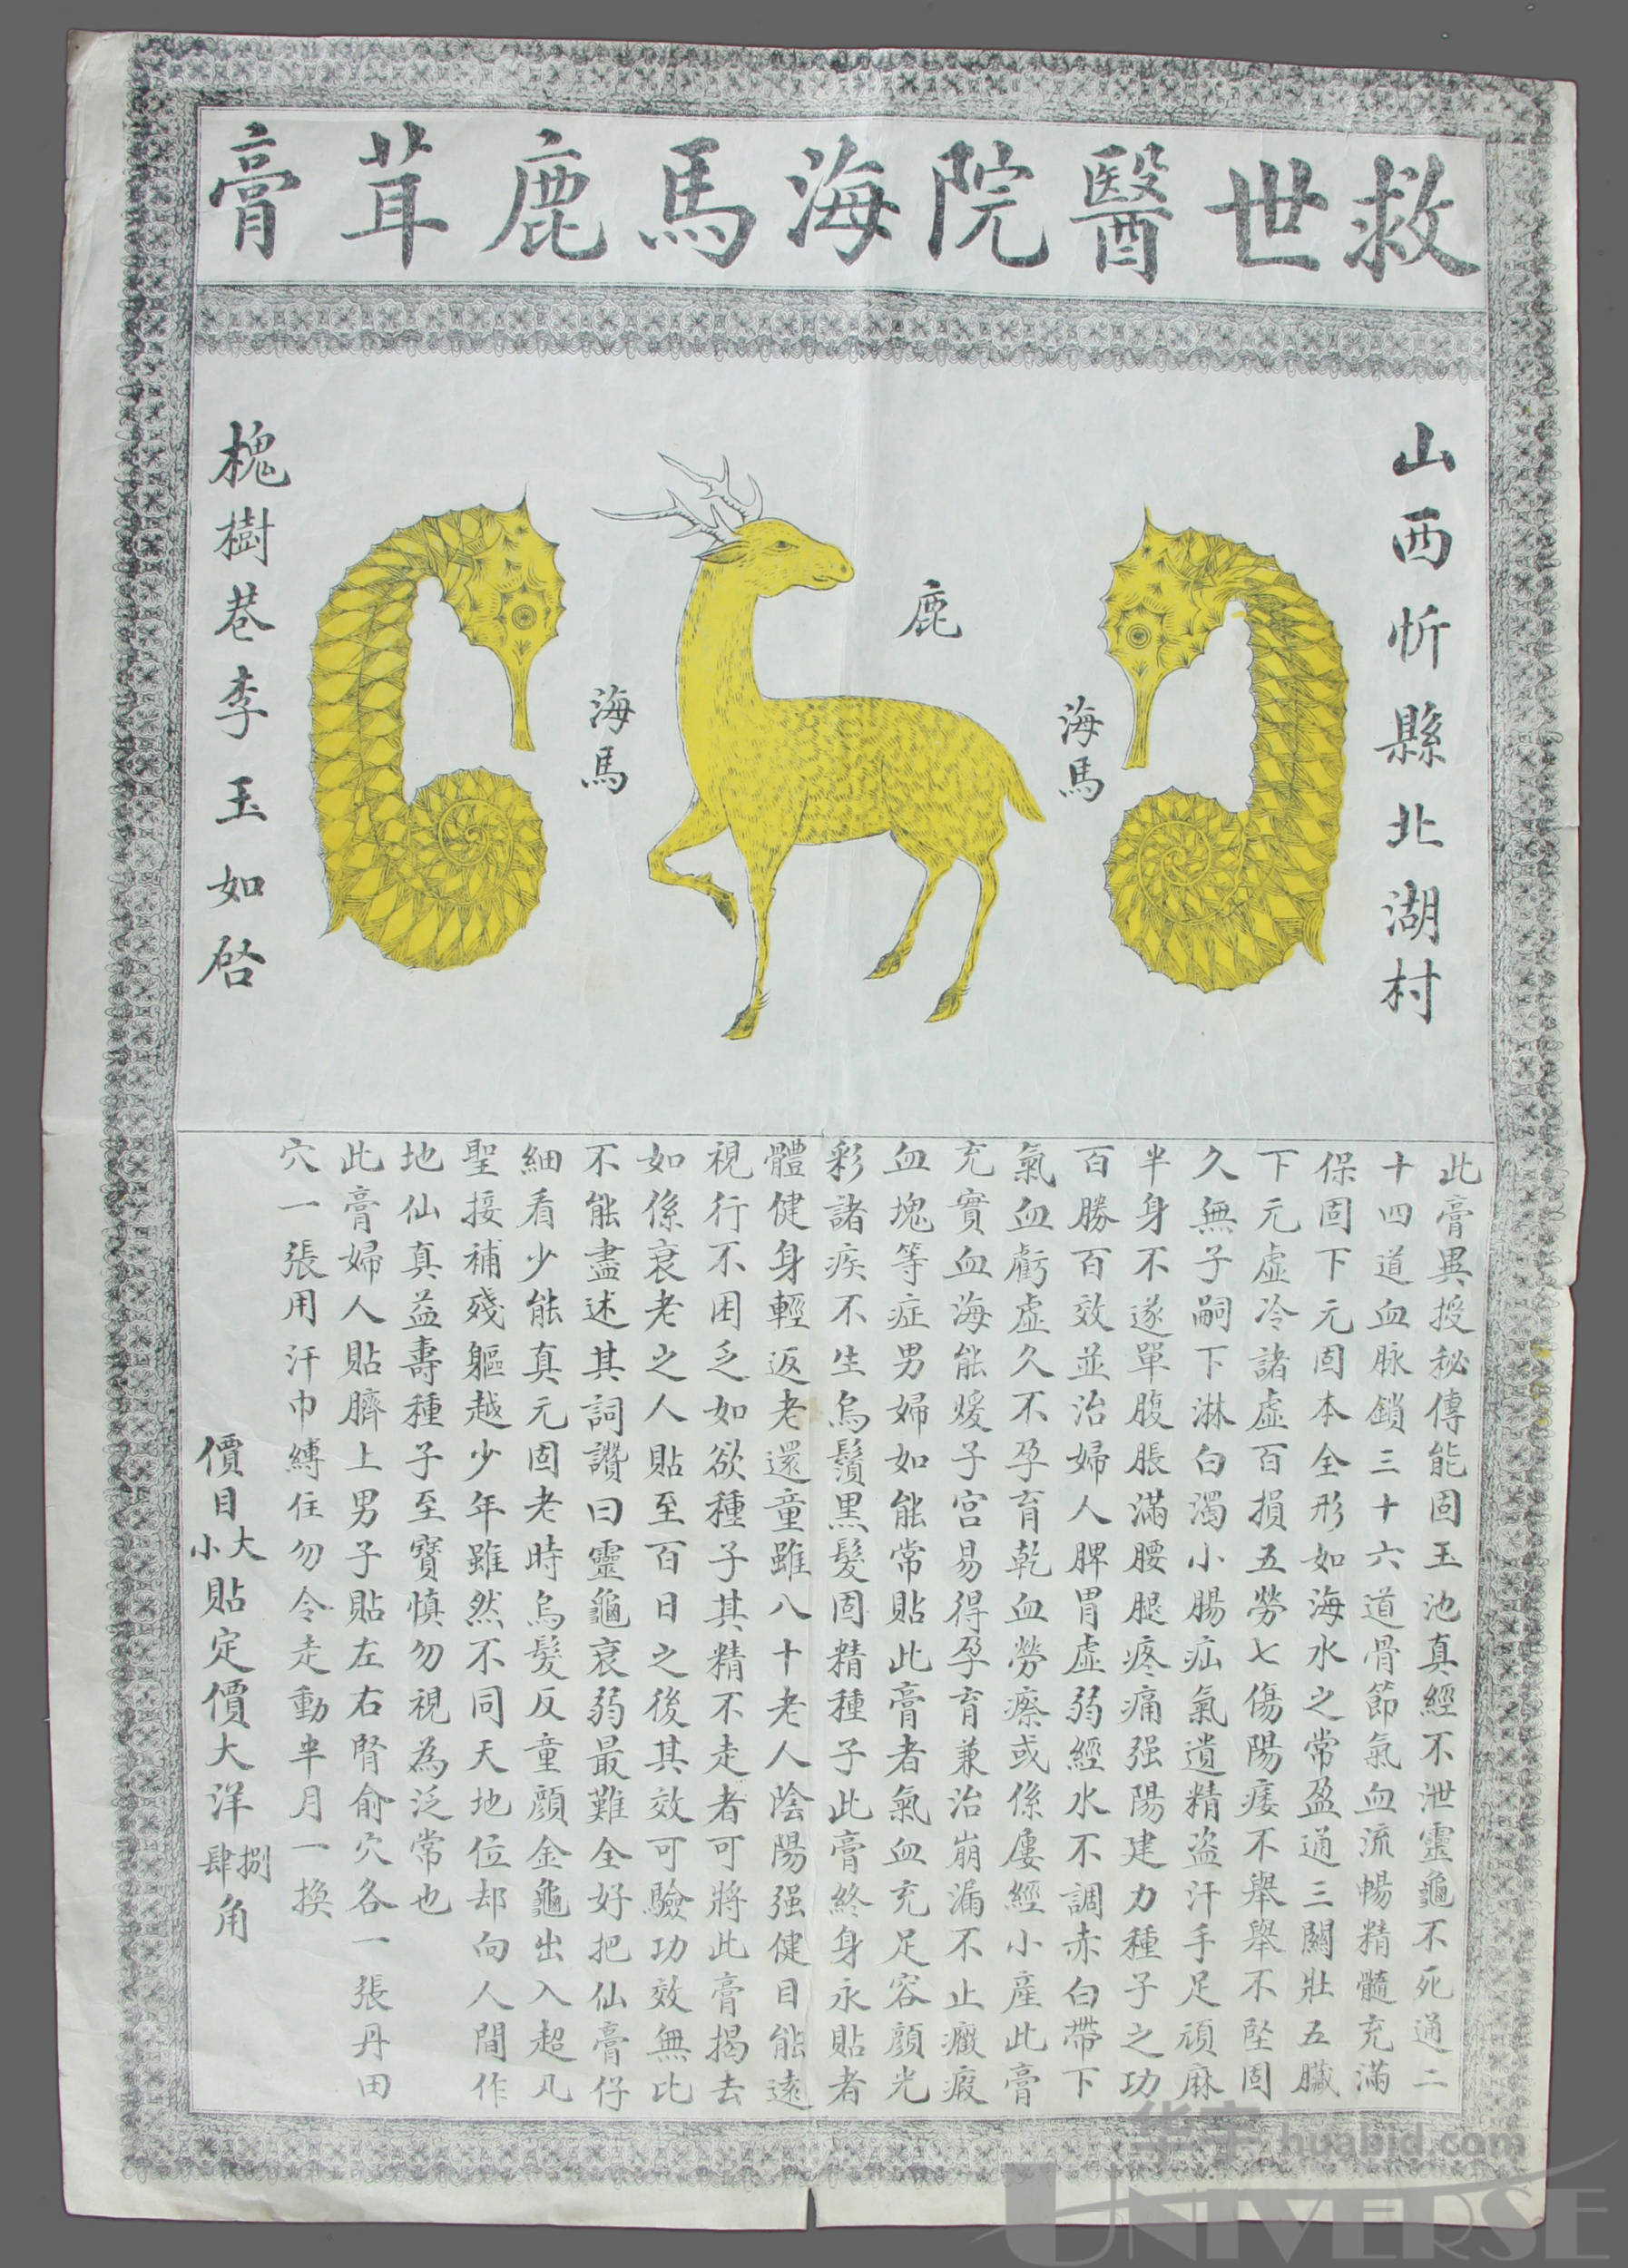 救世醫院海馬鹿茸膏
山西忻縣北湖村
鹿
海馬
海馬
槐樹巷李玉如啓
此膏異授秘傳能固玉池真經不泄靈龜不死通二
十四道血脉鎖三十六道骨節氣血流暢精髓充滿
保固下元固本全形如海水之常盈通三關壯五臟
下元虛冷諸虛百損五勞七傷陽痿不舉舉不堅固
久無子嗣下淋白濁小腸疝氣遺精盗汗手足頑麻
半身不遂單腹脹滿腰腿疼痛强陽建力種子之功
百勝百效並治婦人脾胃虛弱經水不調赤白帶下
氣血虧虛久不孕育乾血勞瘵或係屢經小產此膏
充實血海能煖子宮易得孕育兼治崩漏不止癥瘕
血塊等症男婦如能常貼此膏者氣血充足容顏光
彩諸疾不生烏鬚黑髮固精種子此膏終身永貼者
體健身輕返老還童雖八十老人陰陽强健目能遠
視行不困乏如欲種子其精不走者可將此膏揭去
如係衰老之人貼至百日之後其效可驗功效無比
不能盡述其詞讚曰靈龜衰弱最難全好把仙膏仔
細看少能真元固老時烏髮反童顏金龜出入超凡
聖接補殘軀越少年雖然不同天地位却向人間作
地仙真益壽種子至寶慎勿視為泛常也
此膏婦人貼臍上男子貼左右腎俞穴各一張丹田
穴一張用汗巾縛住勿令走動半月一換
價目大小貼定價大洋捌肆角
华宇huabid.com
UNIVERSE